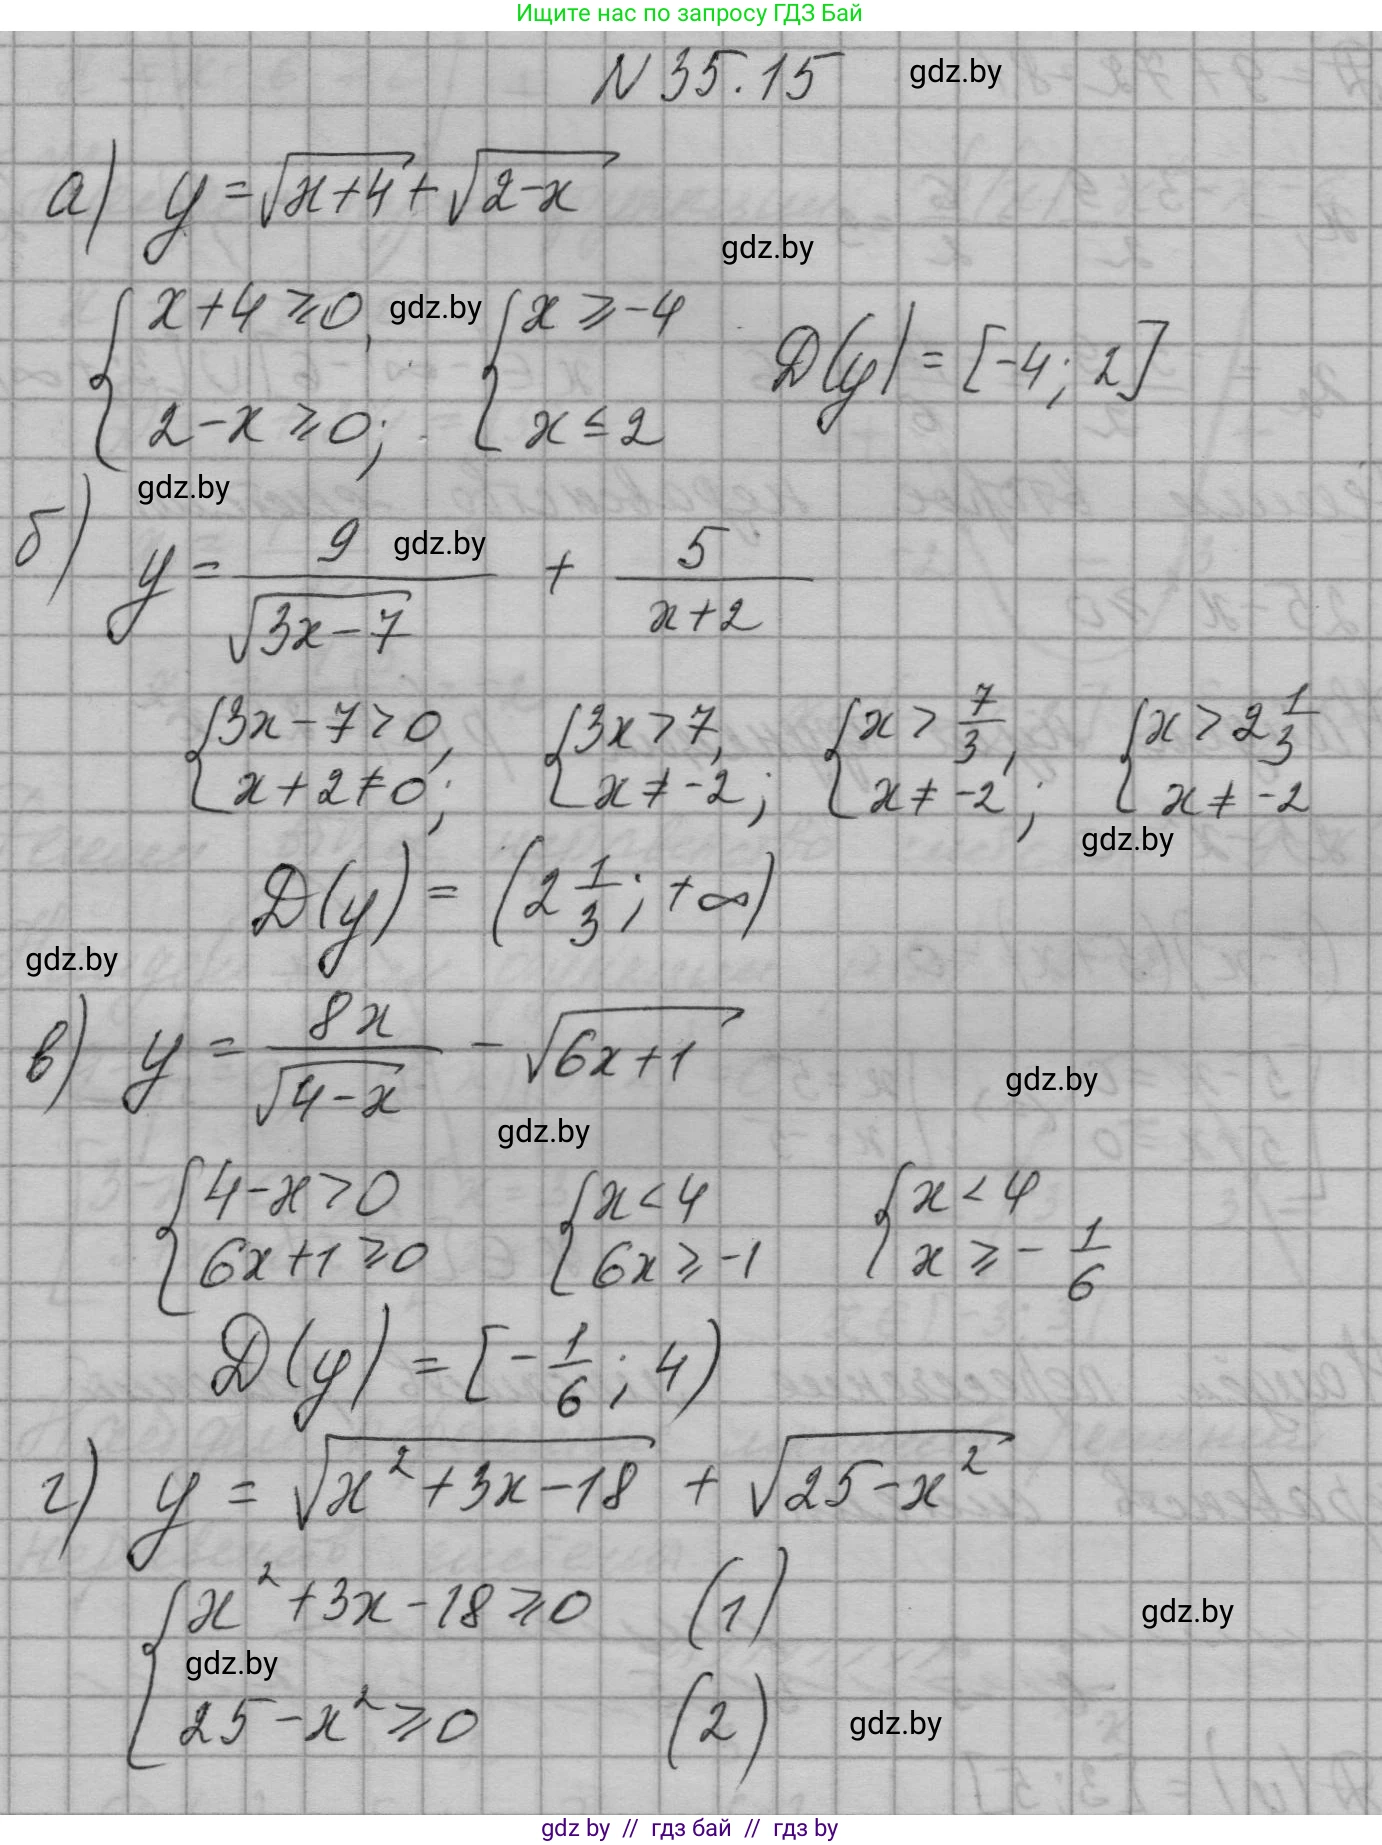 Ищите нас по запросу ГДЗ Бай
N 35.15 gdz.by
а) y = √(x+4) + √(2-x)
gdz.by
{ x+4 ≥ 0, gdz.by { x ≥ -4
D(y) = [-4; 2]
2-x ≥ 0; x ≤ 2
gdz.by
б) y = 9/√(3x-7) + 5/(x+2) gdz.by
{ 3x-7 > 0, { 3x > 7, { x > 7/3, { x > 2 1/3
x+2 ≠ 0; x ≠ -2; x ≠ -2; x ≠ -2
gdz.by
D(y) = (2 1/3; +∞)
gdz.by
в) y = 8x/√(4-x) - √(6x+1)
gdz.by
gdz.by
{ 4-x > 0 { x < 4 { x < 4
6x+1 ≥ 0 6x ≥ -1 x ≥ -1/6
D(y) = [-1/6; 4)
г) y = √(x²+3x-18) + √(25-x²)
{ x²+3x-18 ≥ 0 (1)
gdz.by
gdz.by
25-x² ≥ 0 (2) gdz.by
gdz by // гдз бай // гдз by